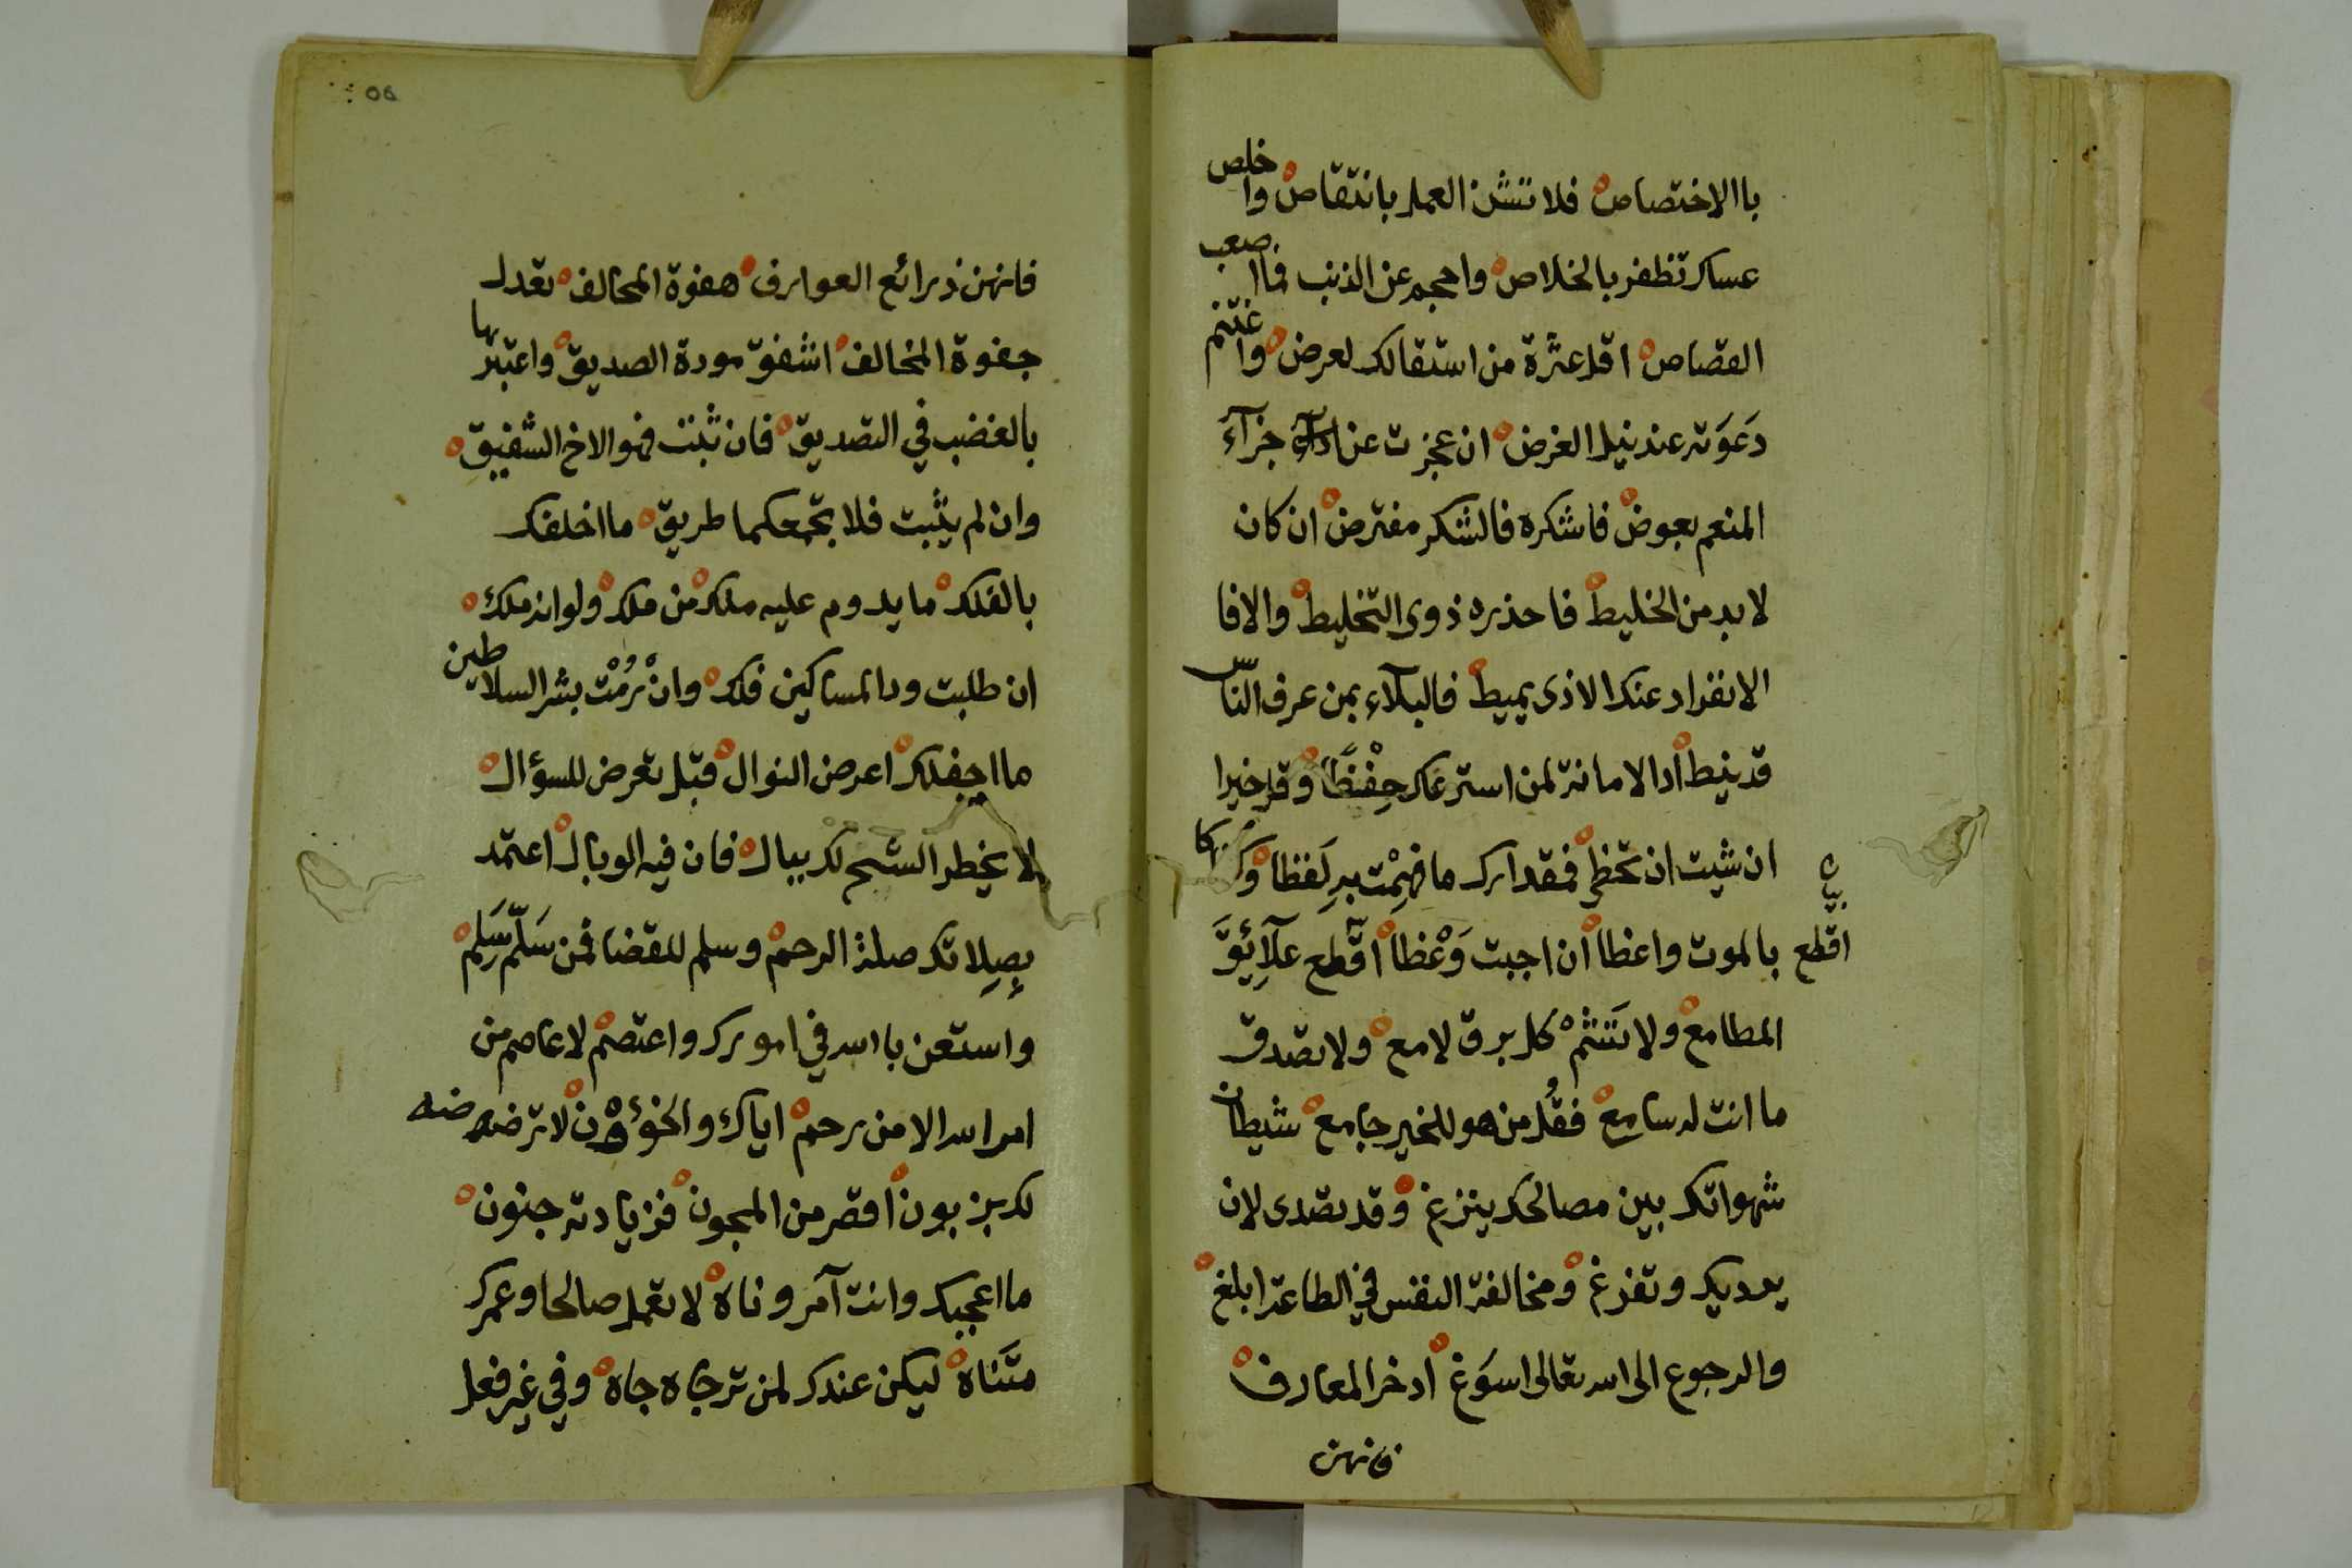 باالاختصاص فلا تشن العمل بانتقاص واخلص
عساك تظفر بالخلاص واحجم عن الذنب فمااصعب
القصاص اقل عثرة من استقالك لعرض واغتنم
دَعوَته عند نيل الغرض ان عجزت عن ادآء جزآء
المنعم بعوض فاشكره فالشكر مفترض ان كان
لابد من الخليط فاحذر ذوى التخليط والافا
الانفراد عنك الاذى يميط فالبلآء بمن عرف النّاس
قد ينط أد الامانة لمن استرعاك حِفْظًا وقل خيرا
ان شيت ان تحظى فقد ارك ما فهِمْت به لَفظا وَكفا بها
بالموت واعظا ان اجبت وَعْظا اقّطع علآئِقَ
بيان
اقطع
المطامع ولا تَشَمْ كل برق لامع ولا تصدق
ما انت له سامع فقُل من هو للخير جامع شيطان
شهواتك بين مصالحك ينزغ وقد تصدى لان
يرديك وتفزغ ومخالفة النفس في الطاعة ابلغ
والرجوع الى الله تعالى اسوَغ ادخر المعارف
فانهن
فانهن ذرائع العوارف هفوة المحالف تعدل
جفوة المخالف انشفق مودة الصديق واعتبرها
بالغضب في التصديق فان ثبتت فهو الاخ الشفيق
وان لم يثبت فلا تجمعكما طريق ما اخلفك
بالفلك ما يدوم عليه ملك من ملك ولو انه ملك
ان طلبت ود المساكين فلك وانْ رُمْت بشر السلاطين
ما اجفلك اعرض النوال قبل تعرض للسؤال
لا يخطر الشح لك ببال فان فيه الوبال اعتمد
بِصِلاتك صلة الرحم وسلم للقضا فمن سَلّم سَلِم
واستعن باالله في امورك واعتصم لا عاصم من
امر الله الا من رحم اياك والخؤون لا ترضه
لك بزبون اقصر من المجون فزيادته جنون
ما اعجبك وانت آمر وناه لا تعمل صالحا وعمرك
متَنَاه ليكن عندك لمن ترجاه جاه وفي غير فعل